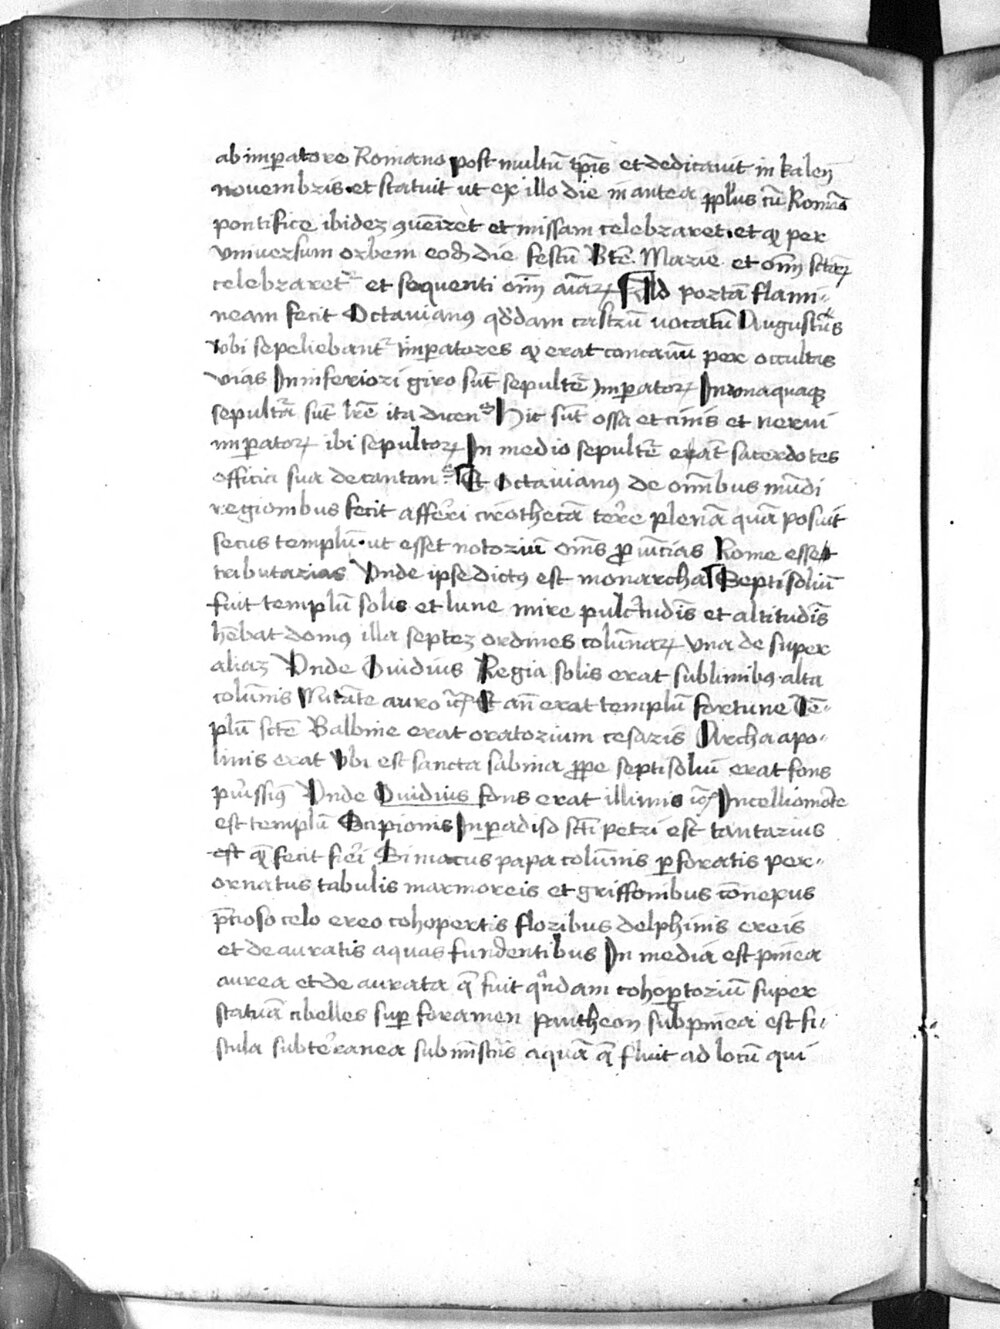 ab imꝑatore Romano post multū tꝑis et dedicavit in kaleñ
novembris et statuit ut ex illo die in antea ꝓpl'us cū Romāo
pontifice ibidez ꝯveīret et missam celebraret et qꝫ per
universum orbem eodē die festū Btē Marie et oīm sctōꝝ
celebraretᷣ et sequenti oīm aīaꝝ Ad portā flami-
neam fecit Octavianꝰ qd'dam castrū vocatū Augustūs
ubi sepeliebantᷣ imꝑatores qꝫ erat concavū per occultas
vias In inferiori giro sūt sepultē imperatoꝝ In unaquaqꝫ
sepultā sūt lr̄e ita dicenᵗᵉˢ Hic sūt ossa et cinis et nervi
imꝑatoꝝ ibi sepultoꝝ In medio sepultē erāt sacerdotes
officia sua decantanᵗᵉˢ Et Octavianꝰ de oīnibus mūdi
regionibus fecit afferi creothecā terre plenā quā posuit
secus templū ut esset notoriū oīnis ꝓvīcias Rome esset
tributarias Unde ipse dictꝰ est monarcha Septisoliū
fuit templū solis et lune mire pulcʳtudīs et altitudīs
hēbat domꝰ illa septez ordines colūnaꝝ una de super
aliaz Unde Ovidius Regia solis erat sublimibꝰ alta
colūnis Mutāte auro ic̄ Et añ erat templū fortune Tē-
plū sctē Balbine erat oratorium cesaris Archa apo-
linis erat Ubi est sancta sabina ꝓpe septisoliū erat fons
puʳissiꝰ Unde Ovidius fons erat illimis ic̄ In celliomōte
est templū Scipionis In ꝑadiso scti petri est cantarus
est q̄ fecit fieri Simacus papa colūnis ꝑforatis per-
ornatus tabulis marmoreis et griffonibus cōnexus
p̄cioso celo ereo cohopertis floribus delphinis ereis
et deauratis aquas fundentibus In media est pinea
aurea et deaurata q̄ fuit qᵒndam cohoꝑtoriū super
statuā cibelles suꝑ foramen pantheon sub pinea est fi-
stula subterranea submīstrās aquā q̄ fluit ad locū qui